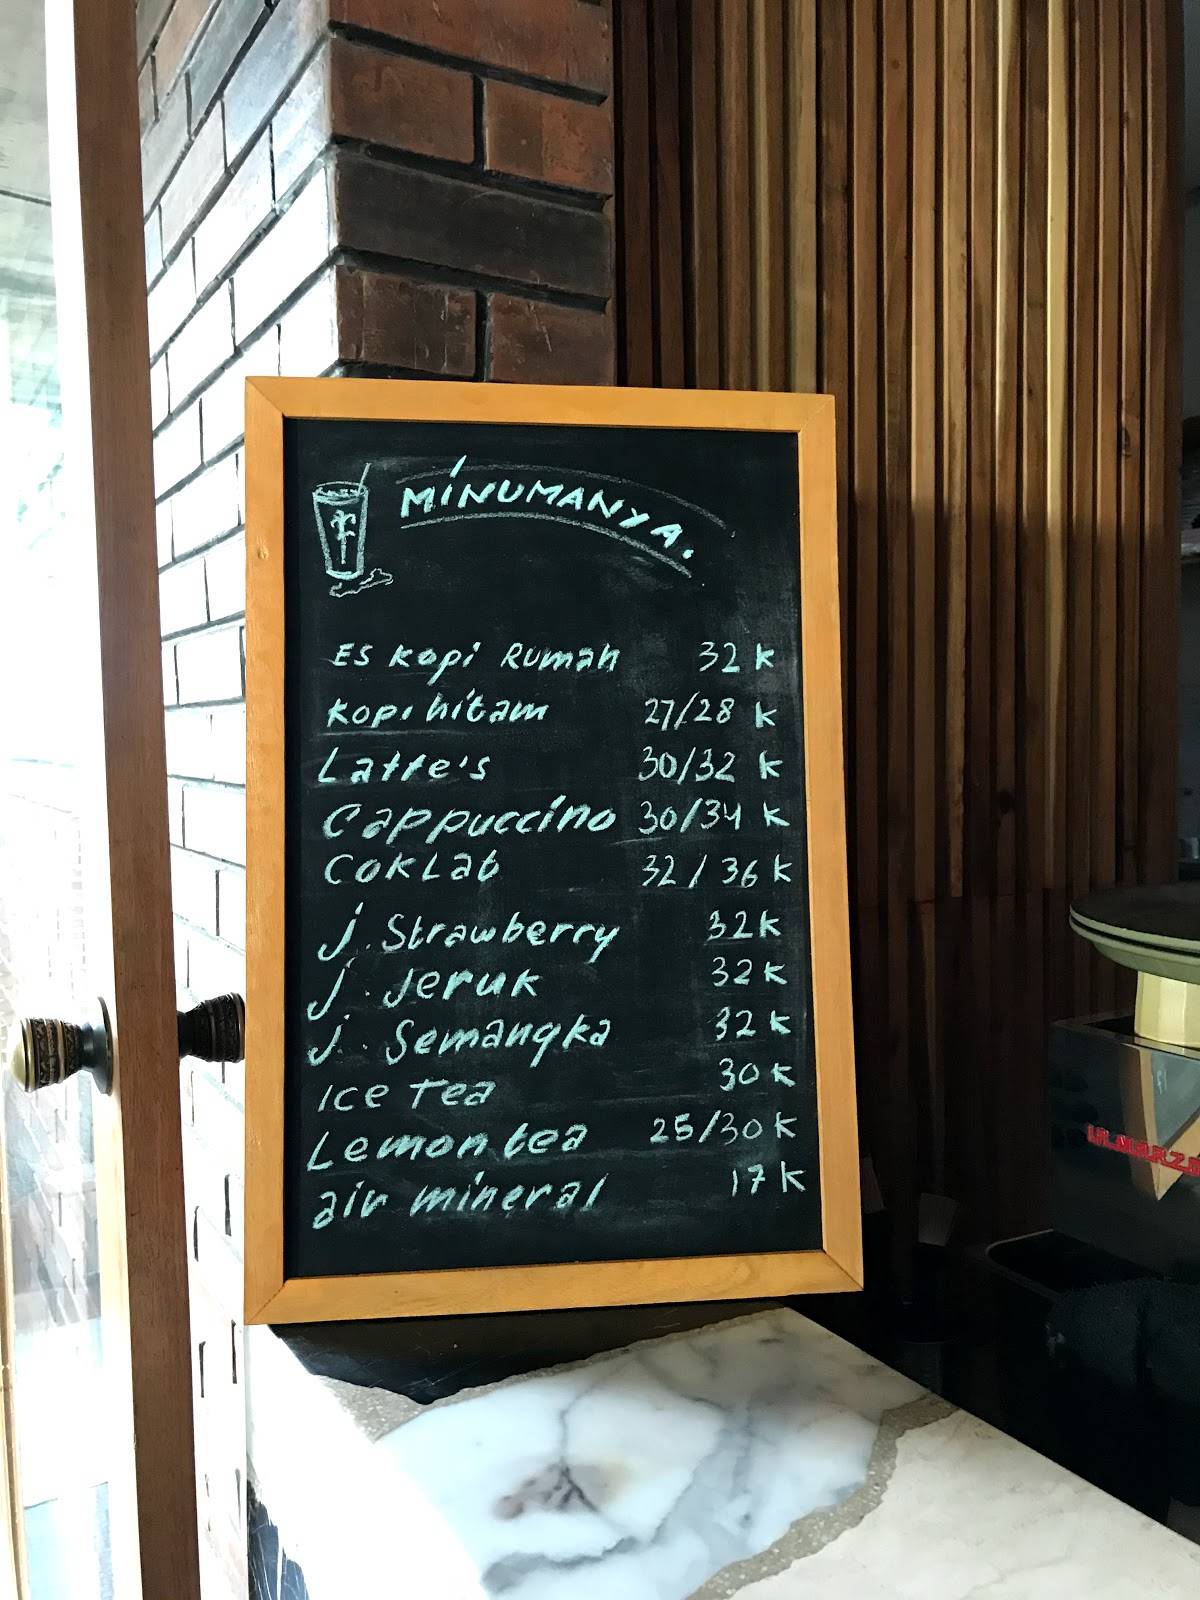 MINUMANYA.
ES Kopi Rumah 32 K
Kopi hitam 27/28 K
Latte's 30/32 K
Cappuccino 30/34 K
COKLat 32/36 K
j. Strawberry 32K
j. Jeruk 32K
j. Semangka 32K
Ice Tea 30K
Lemon tea 25/30K
air mineral 17K